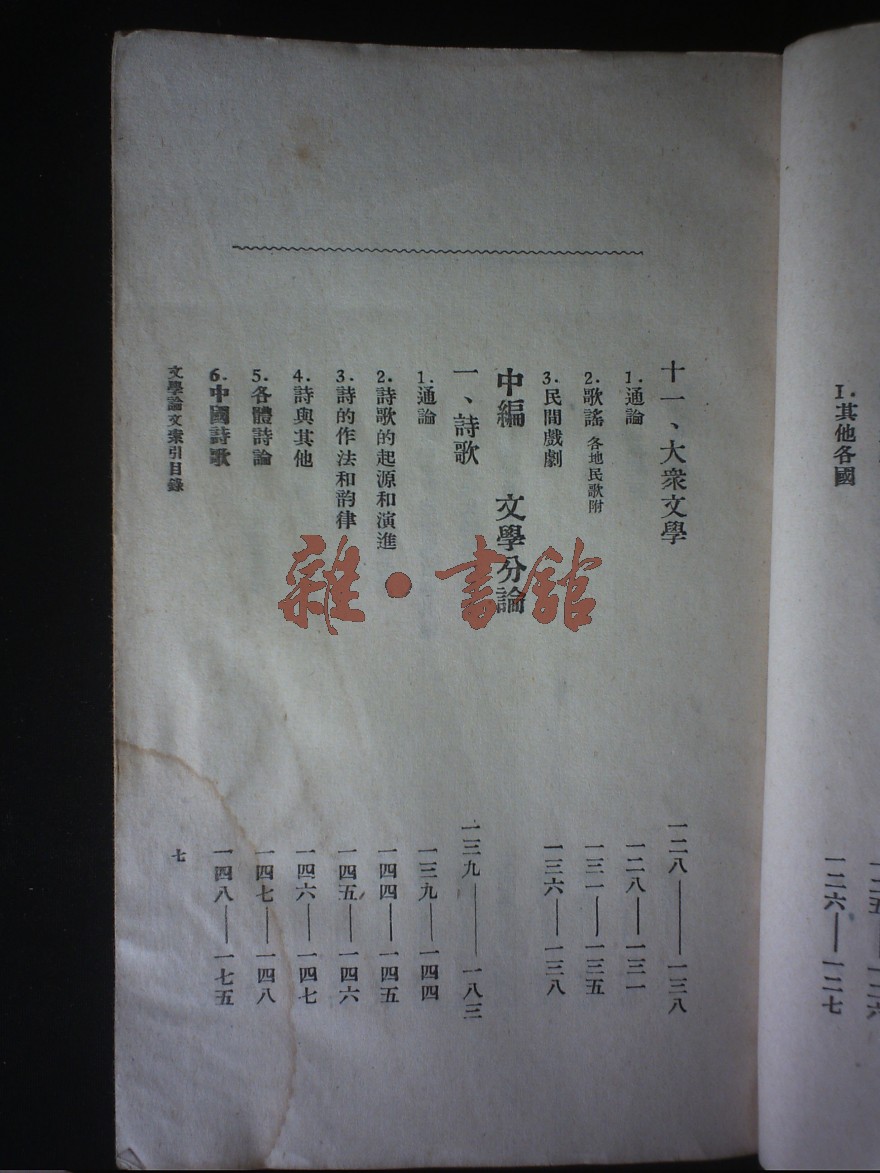 I.其他各國 一二六——一二七
十一、大衆文學 一二八——一三八
1.通論 一二八——一三一
2.歌謠 各地民歌附 一三一——一三五
3.民間戲劇 一三六——一三八
中編 文學分論
一、詩歌 一三九——一八三
1.通論 一三九——一四四
2.詩歌的起源和演進 一四四——一四五
3.詩的作法和韵律 一四五——一四六
4.詩與其他 一四六——一四七
5.各體詩論 一四七——一四八
6.中國詩歌 一四八——一七五
文學論文索引目錄 七
雜·書館